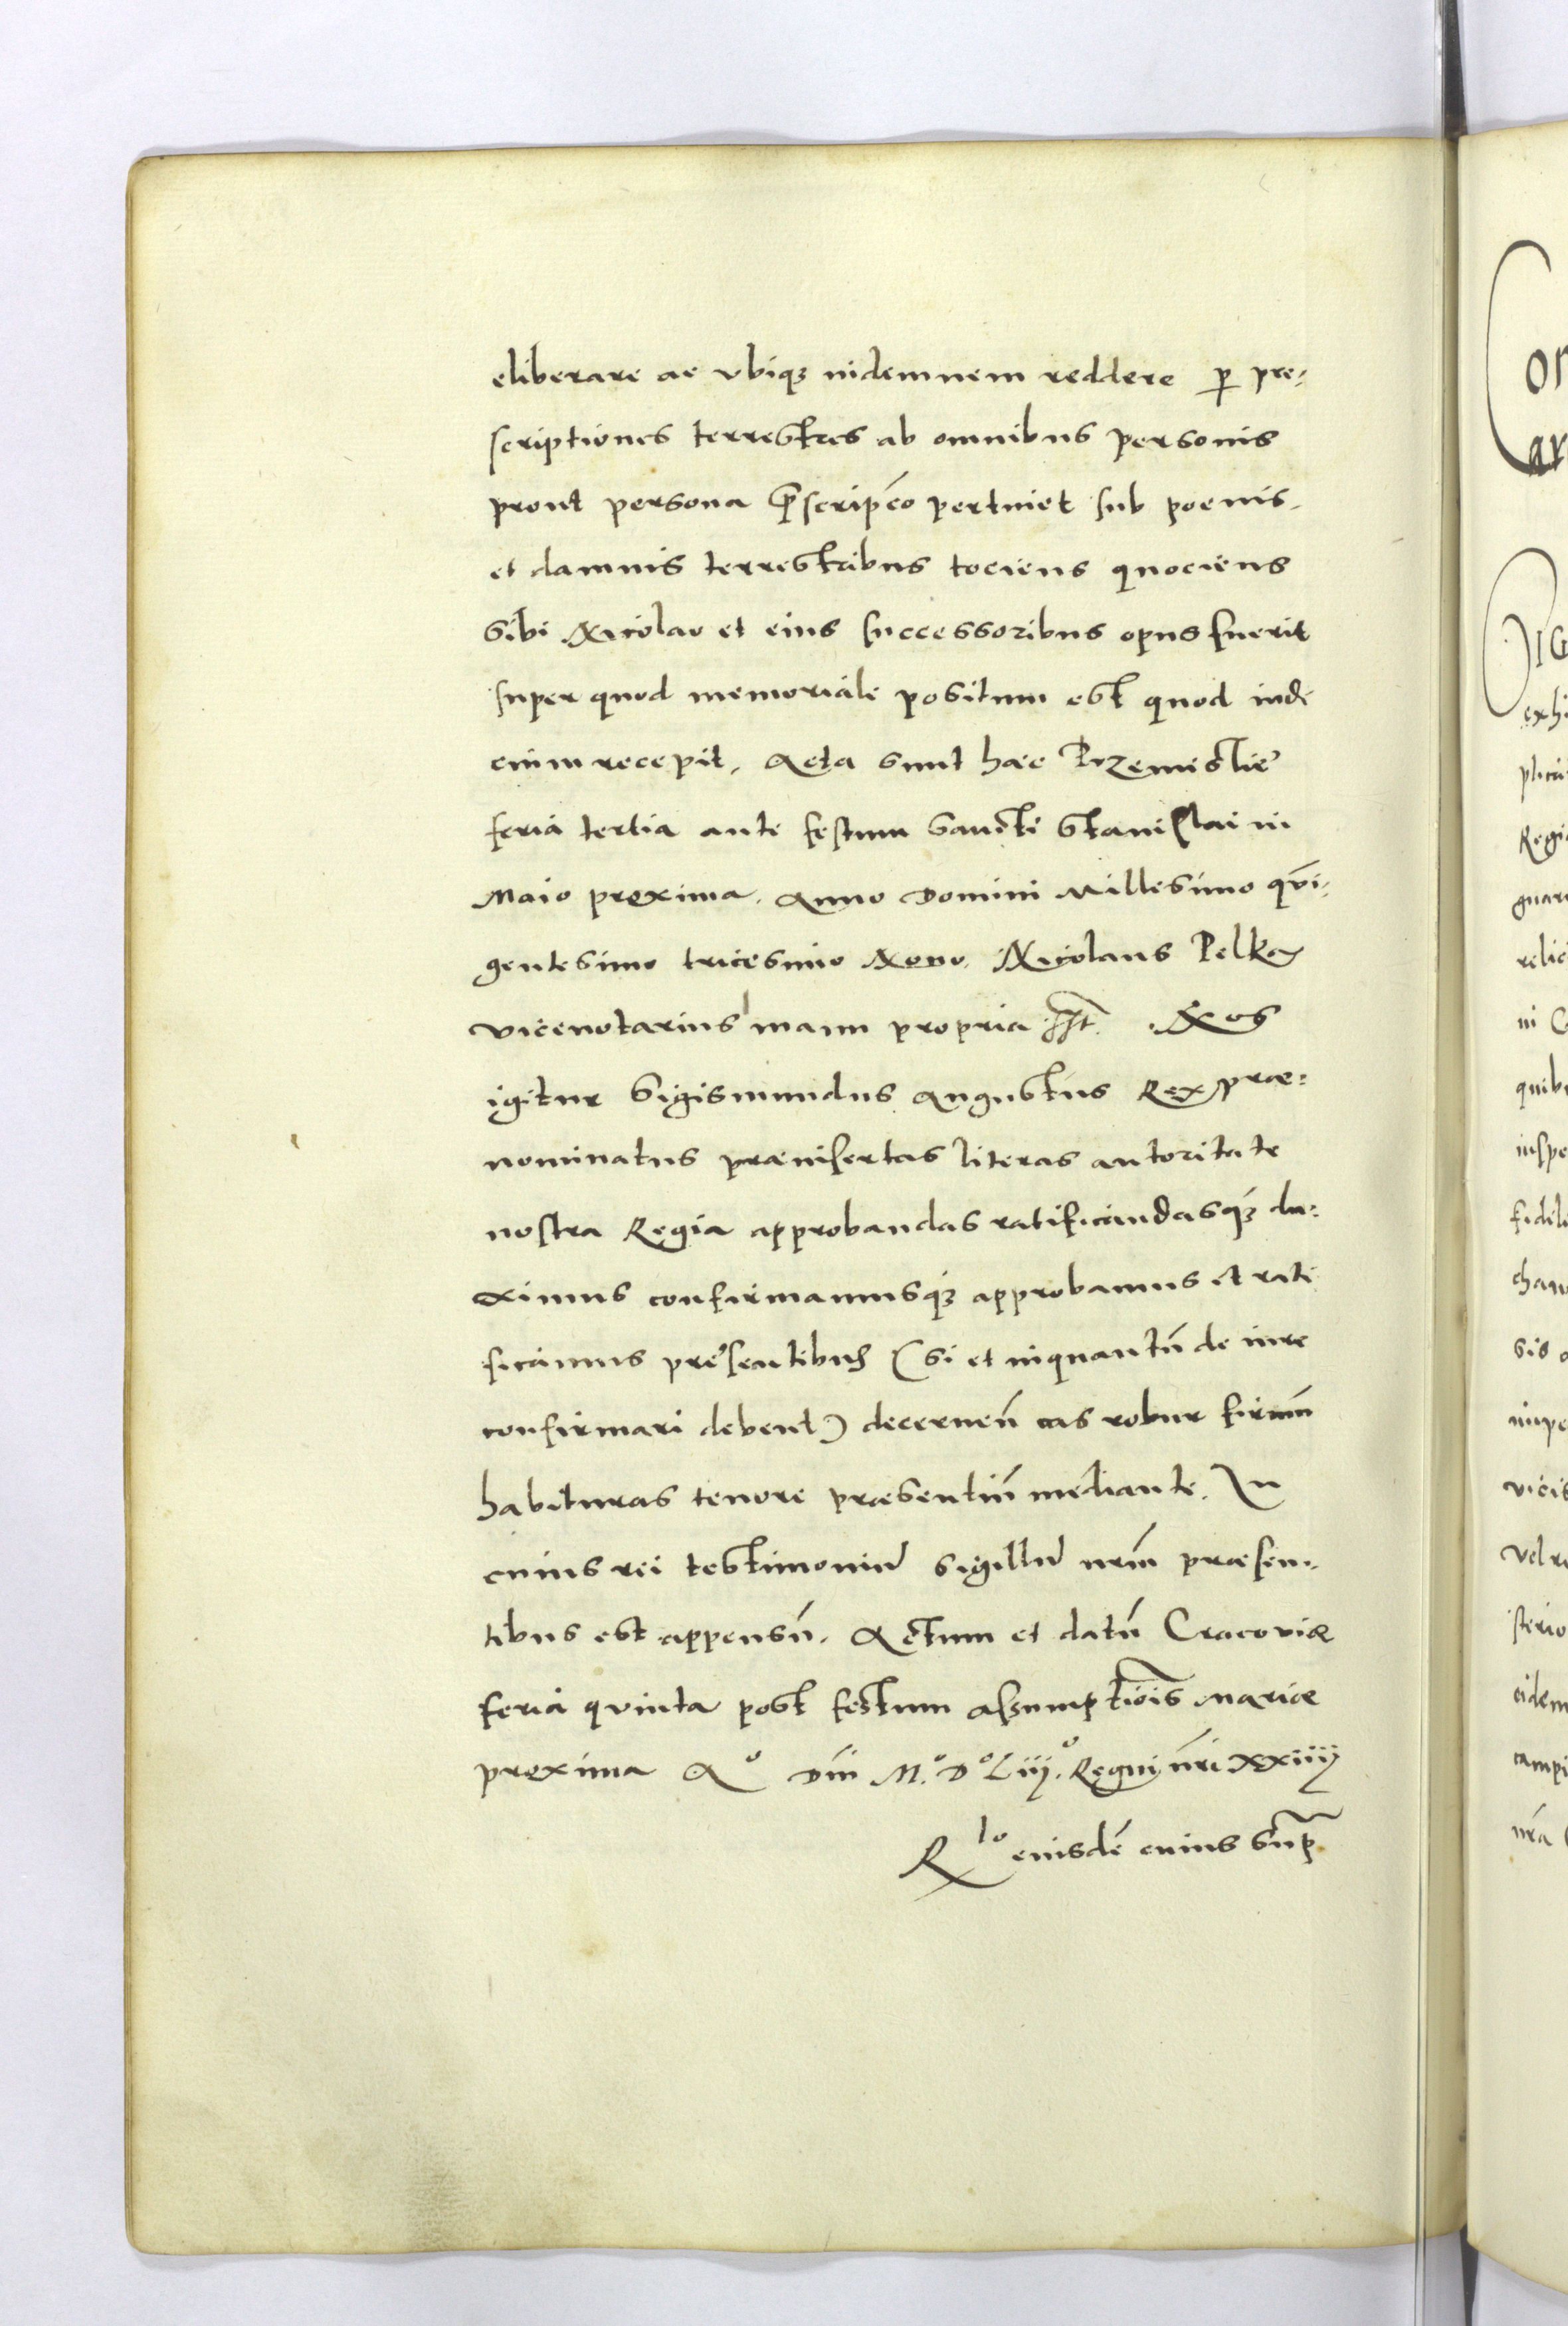 eliberare ac vbiq3 indemnem reddere ꝑ pre:
scriptiones terrestres ab omnibus personis
prout persona p̃scripc̃o pertinet sub poenis
et damnis terrestribus tociens quociens
sibi Nicolao et eius successoribus opus fuerit
super quod memoriale positum est quod inde
enim recepit. Acta sunt haec Przemisliae
feria tertia ante festum Sancti Stanislai in
Maio proxima. Anno Domini Millesimo qvi:
gentesimo tricesimo Nono. Nicolaus Pelka
vicenotarius manu propria sst. Nos
igitur Sigismundus Augustus Rex prae:
nominatus praeinsertas literas autoritate
nostra Regia approbandas ratificandasq3 du:
ximus confirmamusq3 approbamus et rati
ficamus praesentibus (si et inquantũ de iure
confirmari debent) decerneñ eas robur firmũ
habituras tenore praesentiũ mediante. In
cuius rei testimoniũ sigillũ nrm̃ praesen:
tibus est appensũ. Actum et datũ Cracoviae
feria qvinta post festum assumptiõis Mariae
proxima Aº Dñi M.º Dº Liij.º Regni ñri xxiiij
Rlo eiusdẽ cuius sup̃
or
ar
DIG
exhi
plica
Regi
guar
relic
in C
quib
inspe
fideli
chan
sis
nupe
vicis
vel re
sterio
eidem
campi
nr̃a